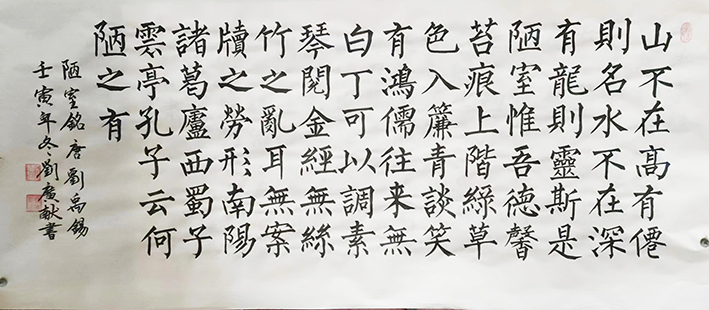 山不在高有僊
則名水不在深
有龍則靈斯是
陋室惟吾德馨
苔痕上階綠草
色入簾青談笑
有鴻儒往来無
白丁可以調素
琴閱金經無絲
竹之亂耳無案
牘之勞形南陽
諸葛廬西蜀子
雲亭孔子云何
陋之有
陋室銘唐劉禹錫
壬寅年冬劉慶献書